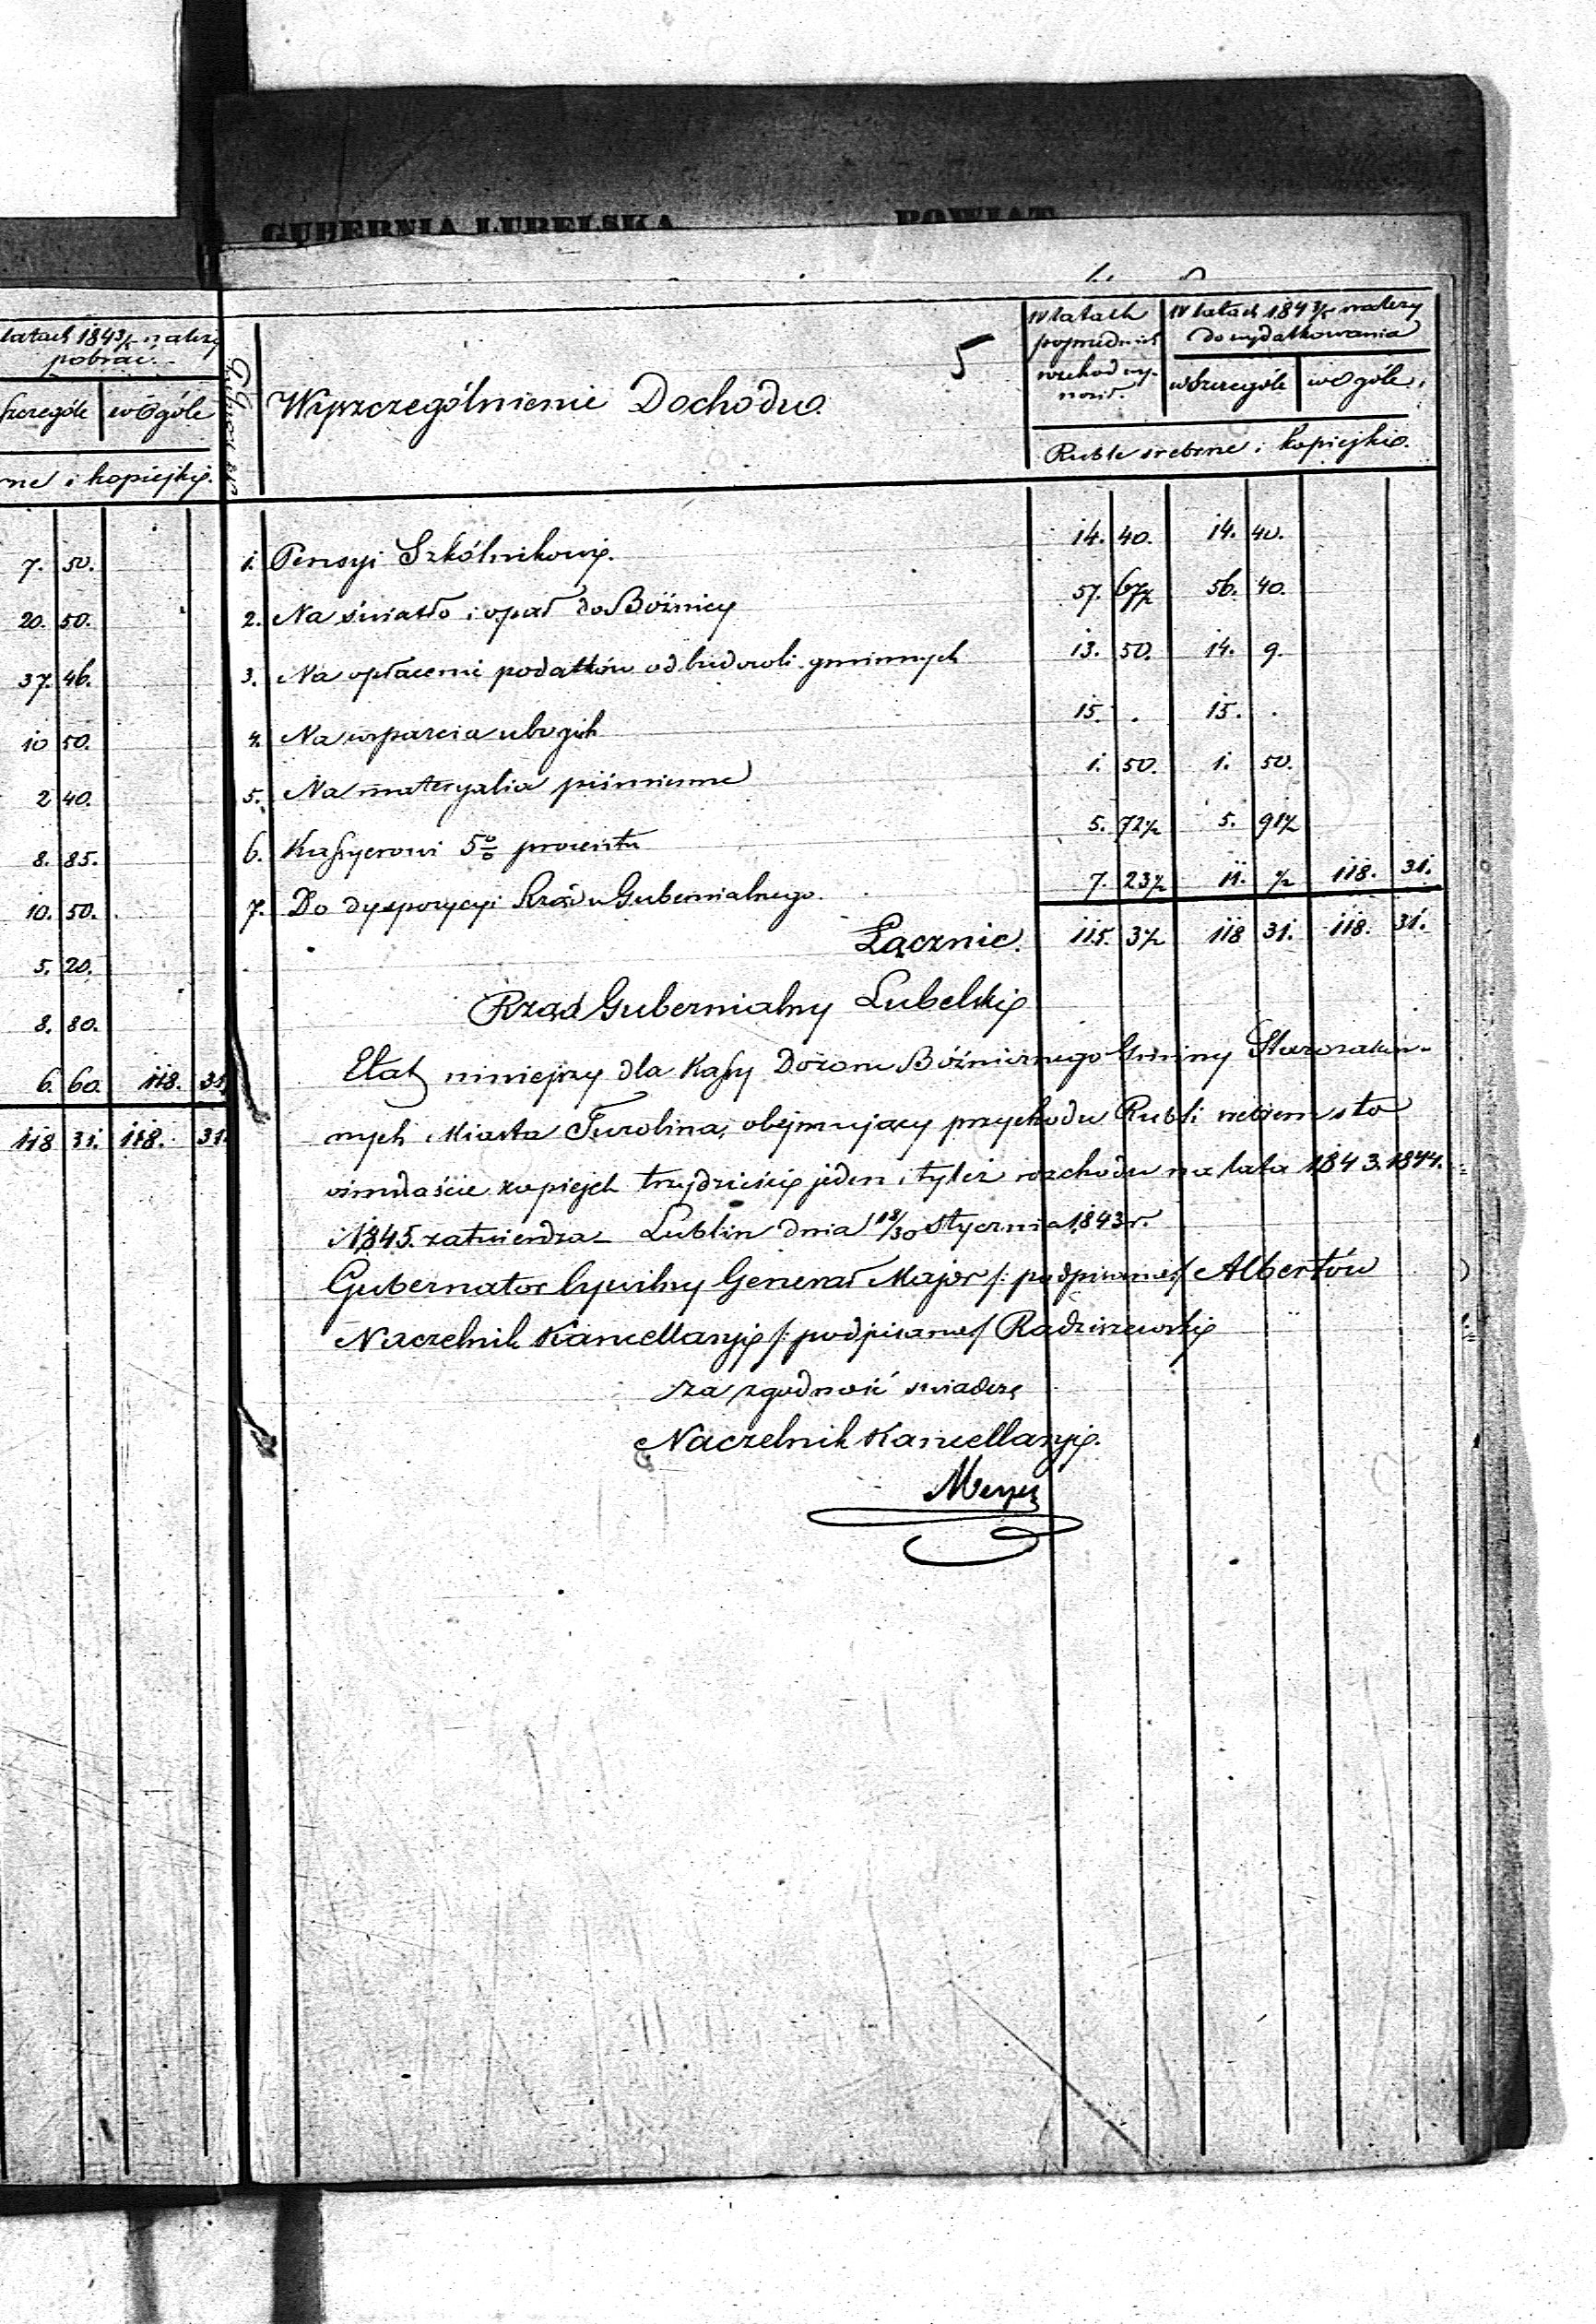 GUBERNIA LUBELSKA POWIAT
latach 1843/5 należy
pobrać.
szczególe wogóle
rne i kopiejki.
7. 50.
20. 50.
37. 46.
10 50.
2 40.
8. 85.
10. 50.
5. 20.
8. 80.
6. 60. 118. 31.
118 31. 118. 31.
5
Wyszczególnienie Dochodu.
W latach
poprzednich
rozchod wy-
nosił.
W latach 1843/5 należy
do wydatkowania
wszczególe wogóle.
Ruble srebrne i kopiejki.
1. Pensyi Szkólnikowi. 14. 40. 14. 40.
2. Na światło i opał do Bóżnicy 57. 67½ 56. 40.
3. Na opłacenie podatków od budowli gminnych 13. 50. 14. 9.
4. Na wsparcia ubogich 15. . 15. .
5. Na materyalia piśmienne 1. 50. 1. 50.
6. Kassyerowi 5% procentu 5. 72½ 5. 91½
7. Do dyspozycyi Rządu Gubernialnego. 7. 23½ 11. ½ 118. 31.
Łącznie. 115. 3½ 118 31. 118. 31.
Rząd Gubernialny Lubelski
Etat niniejszy dla Kassy Dozoru Bóżnicznego Gminy Starozakon-
nych Miasta Turobina, obejmujący przychodu Rubli srebrem sto
ośmnaście kopiejek trzydzieści jeden i tyleż rozchodu na lata 1843. 1844.
i 1845. zatwierdza – Lublin dnia 18/30 Stycznia 1843 r.
Gubernator Cywilny Generał Major /: podpisano :/ Albertów
Naczelnik Kancellaryi /: podpisano / Radziszewski
za zgodność świadczę
Naczelnik Kancellaryi.